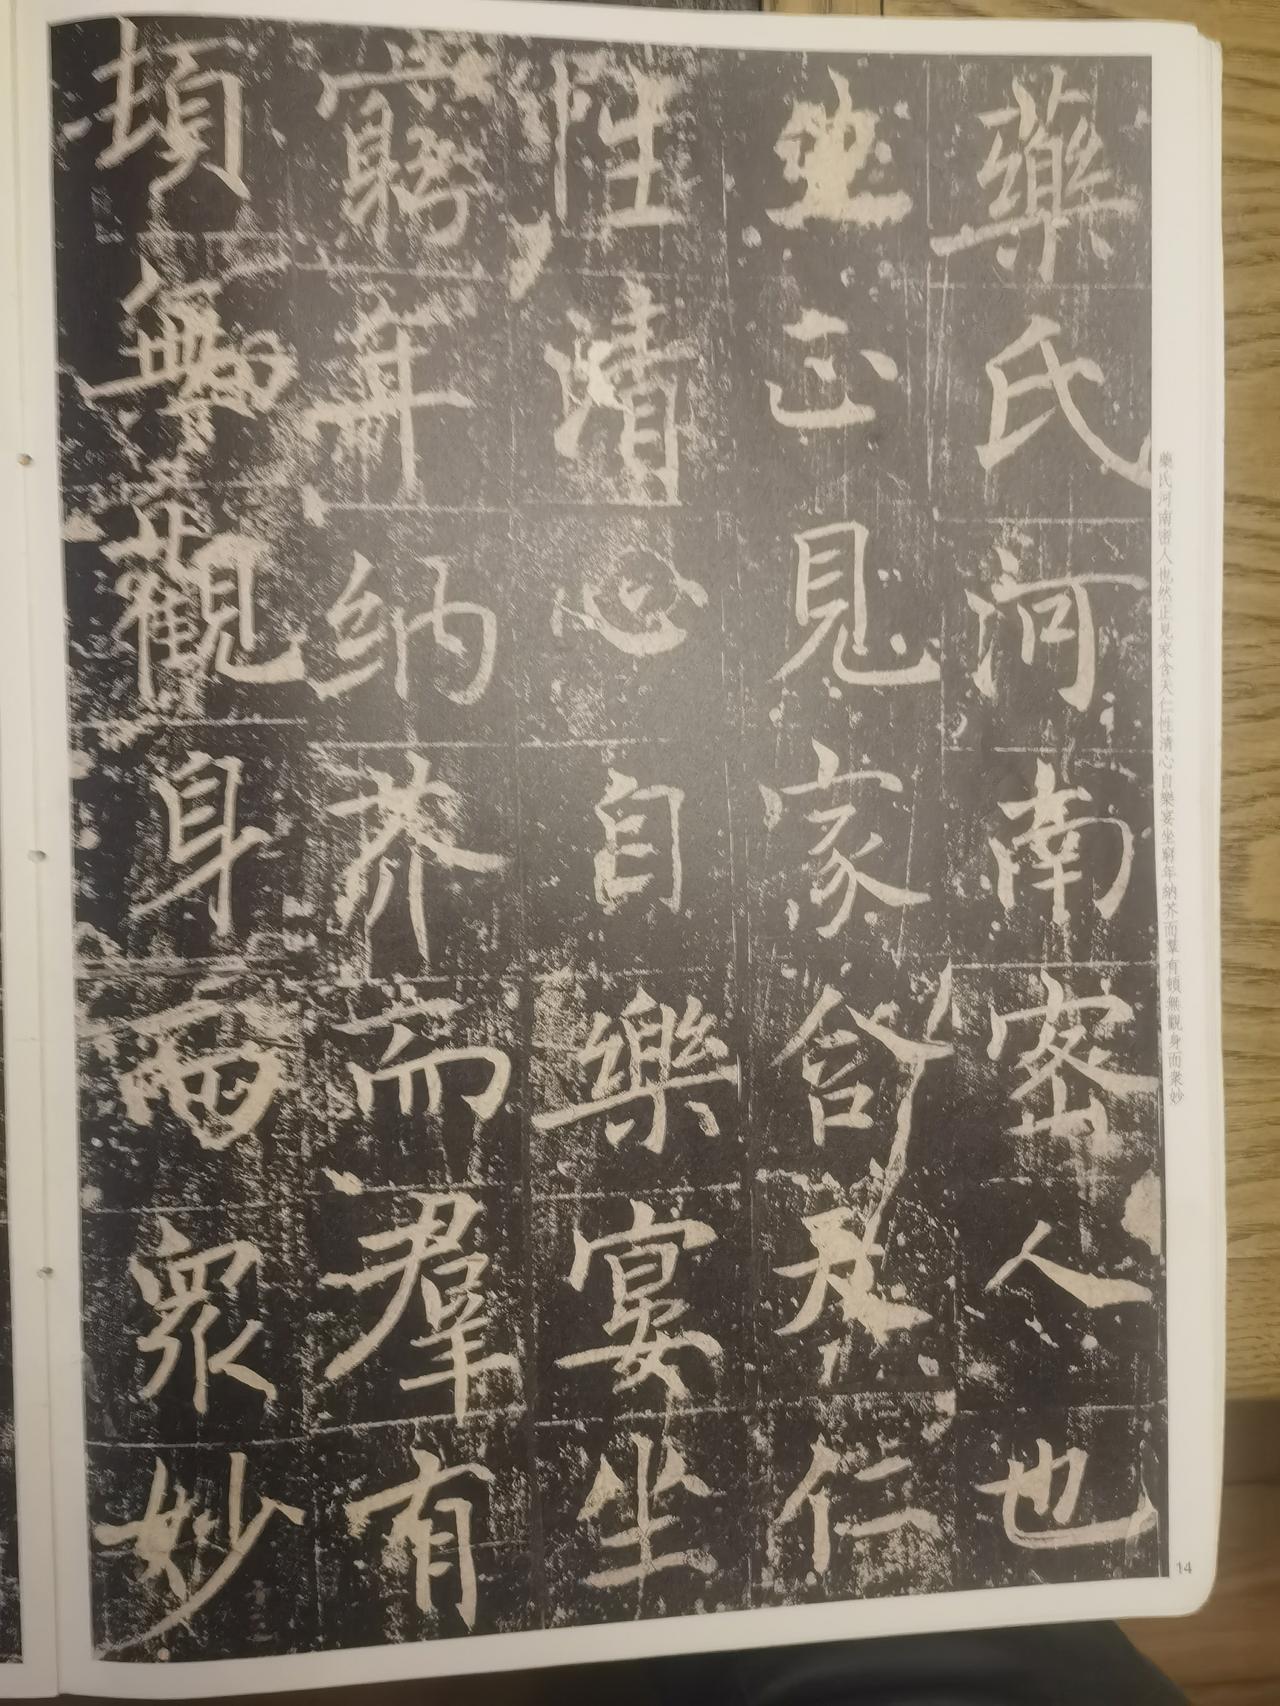 藥氏河南密人也
正見家含天仁
性清心自樂宴坐
窮年納芥而羣有
頓無觀身而衆妙
藥氏河南密人也然正見家含天仁性清心自樂宴坐窮年納芥而羣有頓無觀身而衆妙
14